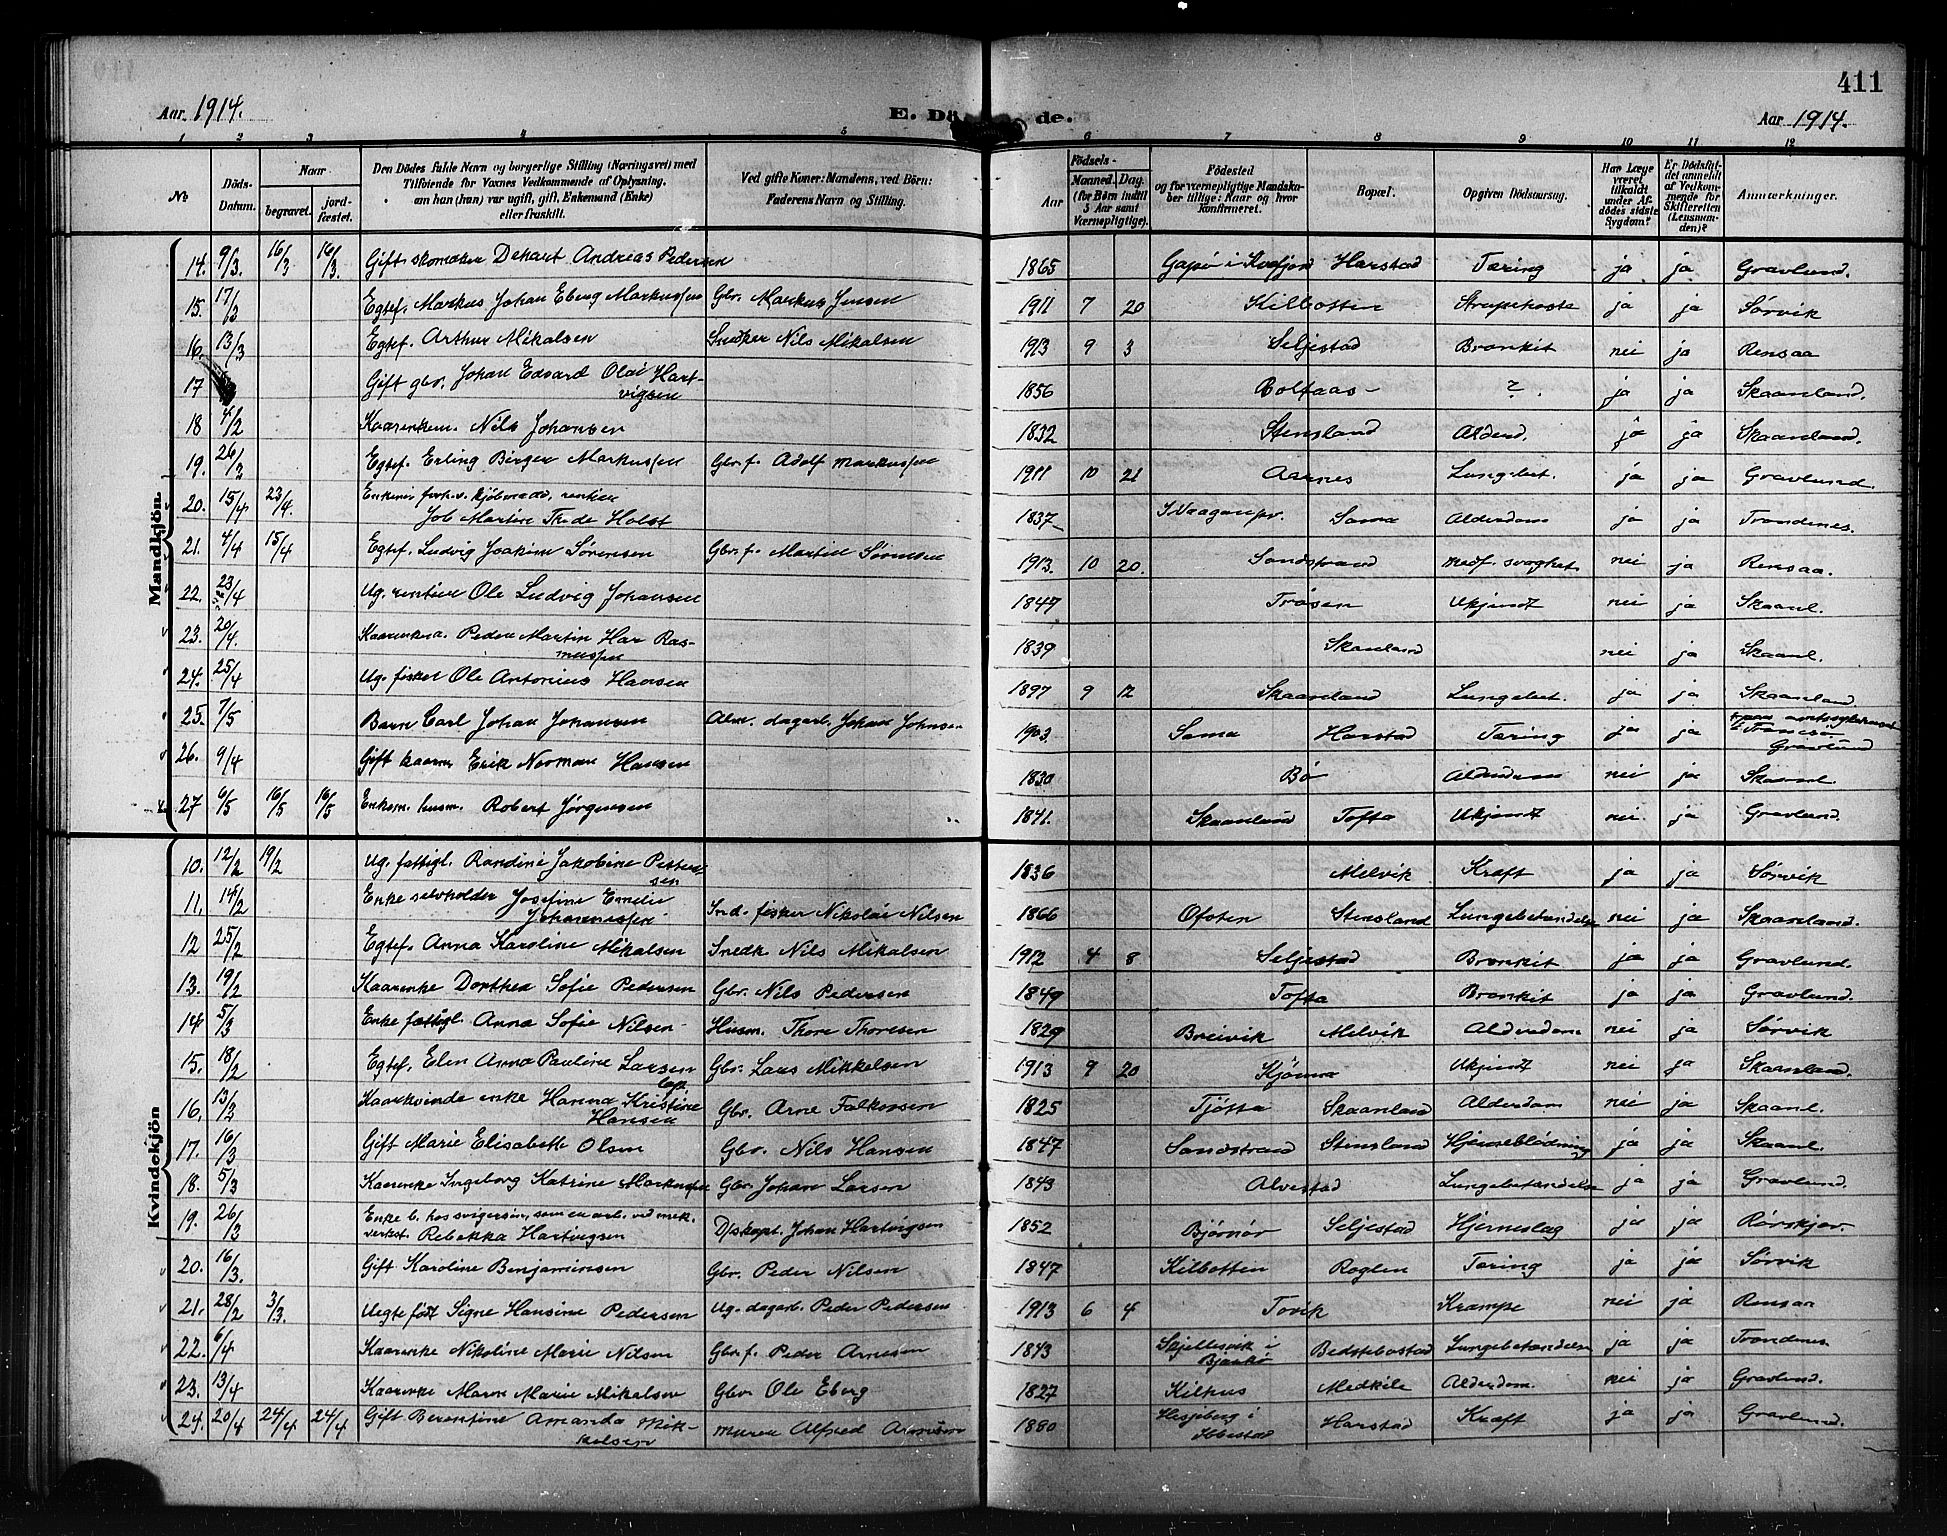 411
Aar 1914. E. Dö de. Aar 1914.
1 2 3 4 5 6 7 8 9 10 11 12
No Döds-Datum. Naar begravet. jordfæstet. Den Dödes fulde Navn og borgerlige Stilling (Næringsvei) med Tilföiende for Voxnes Vedkommende af Oplysning, om han (hun) var ugift, gift, Enkemand (Enke) eller fraskilt. Ved gifte Koner: Mandens, ved Börn: Faderens Navn og Stilling. Aar Födsels- Maaned. Dag. (for Börn indtil 5 Aar samt Værnepligtige). Födested og for værnepligtige Mandskaber tillige: Naar og hvor Konfirmeret. Bopæl. Opgiven Dödsaarsag. Har Læge været tilkaldt under Afdödes sidste Sygdom? Er Dödsfaldet anmeldt af Vedkommende for Skifteretten (Lensmanden)? Anmærkninger.
Mandkjön.
14. 9/3. 16/3 16/3. Gift skomaker Dekart Andreas Pedersen 1865 Gapø i Kvæfjord Harstad Tæring ja ja Gravlund.
15. 17/3 Egtef. Markus Johan Eberg Markussen Gbr. Markus Jensen 1911 7 20 Kilbotten Strupehoste ja ja Sørvik
16. 13/3 Egtef. Arthur Mikalsen Snedker Nils Mikalsen 1913 9 3 Seljestad Bronkit nei ja Rensaa
17 Gift gbr. Johan Edvard Olai Hart-
vigsen 1856 Bolfaas - ? ja ja Skaanland.
18 4/2 Kaarenkem. Nils Johansen 1832 Stensland Alderd. ja ja Skaanland.
19. 26/3 Egtef. Erling Birger Markussen Gbr. f. Adolf Markussen 1911 10 21 Aarnes Lungebet. ja ja Gravlund.
20. 15/4 23/4. Enkem. forh.v. kjøbmand, rentier
Job Martin Trude Holst 1837 Vaagan pr. Sama Alderdom ja ja Trondenes.
21. 4/4 15/4 Egtef. Ludvig Joakim Sørensen Gbr. f. Martin Sørensen 1913. 10 20. Sandstrand medf. svaghet nei ja Rensaa.
22. 23/4 Ug. rentier Ole Ludvig Johansen 1847 Trøsen Ukjendt nei ja Skaanl.
23. 20/4. Kaarenkem. Peder Martin Har Ras-
mussen 1839 Skaanland nei ja Skaanl.
24. 25/4 Ug. fisker Ole Antonius Hansen 1897 9 12 Skaanland Lungebet. ja ja Skaanland
25. 7/5 Barn Carl Johan Johansen Alm. dagarb. Johan Johnsen 1903. Sama Harstad Tæring ja ja † paa amtssykehuset
i Tromsø
Gravlund
26. 9/4 Gift kaarm Erik Norman Hansen 1830 Bø Alderdom nei ja Skaanl.
27 6/5 16/5 16/5 Enkem. husm. Robert Jørgensen 1841. Skaanland Tofta Ukjendt nei ja Gravlund.
Kvindekjön
10. 12/2 19/2 Ug. fattigl. Randine Jakobine Peter-
sen 1836 Melvik Kræft ja ja Sørvik
11. 14/2 Enke selvholder Josefine Emelie
Johannessen Ind. fisker Nikolai Nilsen 1866 Ofoten Stensland Lungebetændelse nei ja Skaanland.
12 25/2 Egtef. Anna Karoline Mikalsen Snedk Nils Mikalsen 1912 4 8 Seljestad Bronkit ja ja Gravlund.
13. 19/2 Kaarenke Dorthea Sofie Pedersen Gbr. Nils Pedersen 1849 Tofta Bronkit ja ja Gravlund.
14 5/3 Enke fattigl. Anna Sofie Nilsen Husm. Thore Thoresen 1829 Breivik Melvik Alderdom nei ja Sørvik
15. 18/2 Egtef. Elen Anna Pauline Larsen Gbr. Lars Mikkelsen 1913 9 20 Kjønna Ukjendt nei ja Skaanland.
16. 13/3 Kaarkvinde enke Hanna Kristine
Hansen Gbr. Arne Falksen 1825 Tjøtta Skaanland Alderdom nei ja Skaanl.
17. 16/3 Gift Marie Elisabeth Olsen Gbr. Nils Hansen 1847 Sandstrand Stensland Hjerneblödning ja ja Skaanl.
18. 5/3 Kaarenke Ingeborg Katrine Markussen Gbr. Johan Larsen 1843 Alvestad Lungebetændelse ja ja Gravlund.
19. 26/3 Enke b. hos svigersøn, som en arb. ved mek.
verkst. Rebekka Hartvigsen D/skapt. Johan Hartvigsen 1852 Bjørnør Seljestad Hjerneslag ja ja Rørskjær.
20. 16/3. Gift Karoline Benjaminsen Gbr. Peder Nilsen 1847 Kilbotten Roglen Tæring ja ja Sørvik
21. 28/2 3/3. Uegte født Signe Hansine Pedersen Ug. dagarb. Peder Pedersen 1913 6 4 Tovik Krampe nei ja Rensaa
22. 6/4 Kaarenke Nikoline Marie Nilsen Gbr. f. Peder Arnesen 1843 Skjellesvik i
Bjarkø Bedstebostad Lungebetændelse ja ja Trondenes
23. 13/4 Kaarenke Maren Marie Mikalsen Gbr. Ole Eberg 1827 Kilhus Medkile Alderdom. nei ja Gravlund.
24. 20/4 24/4 24/4 Gift Berentine Amanda Mik-
kelsen Murer Alfred 1880 Hesjeberg i
Ibbestad Harstad Kræft ja ja Gravlund.